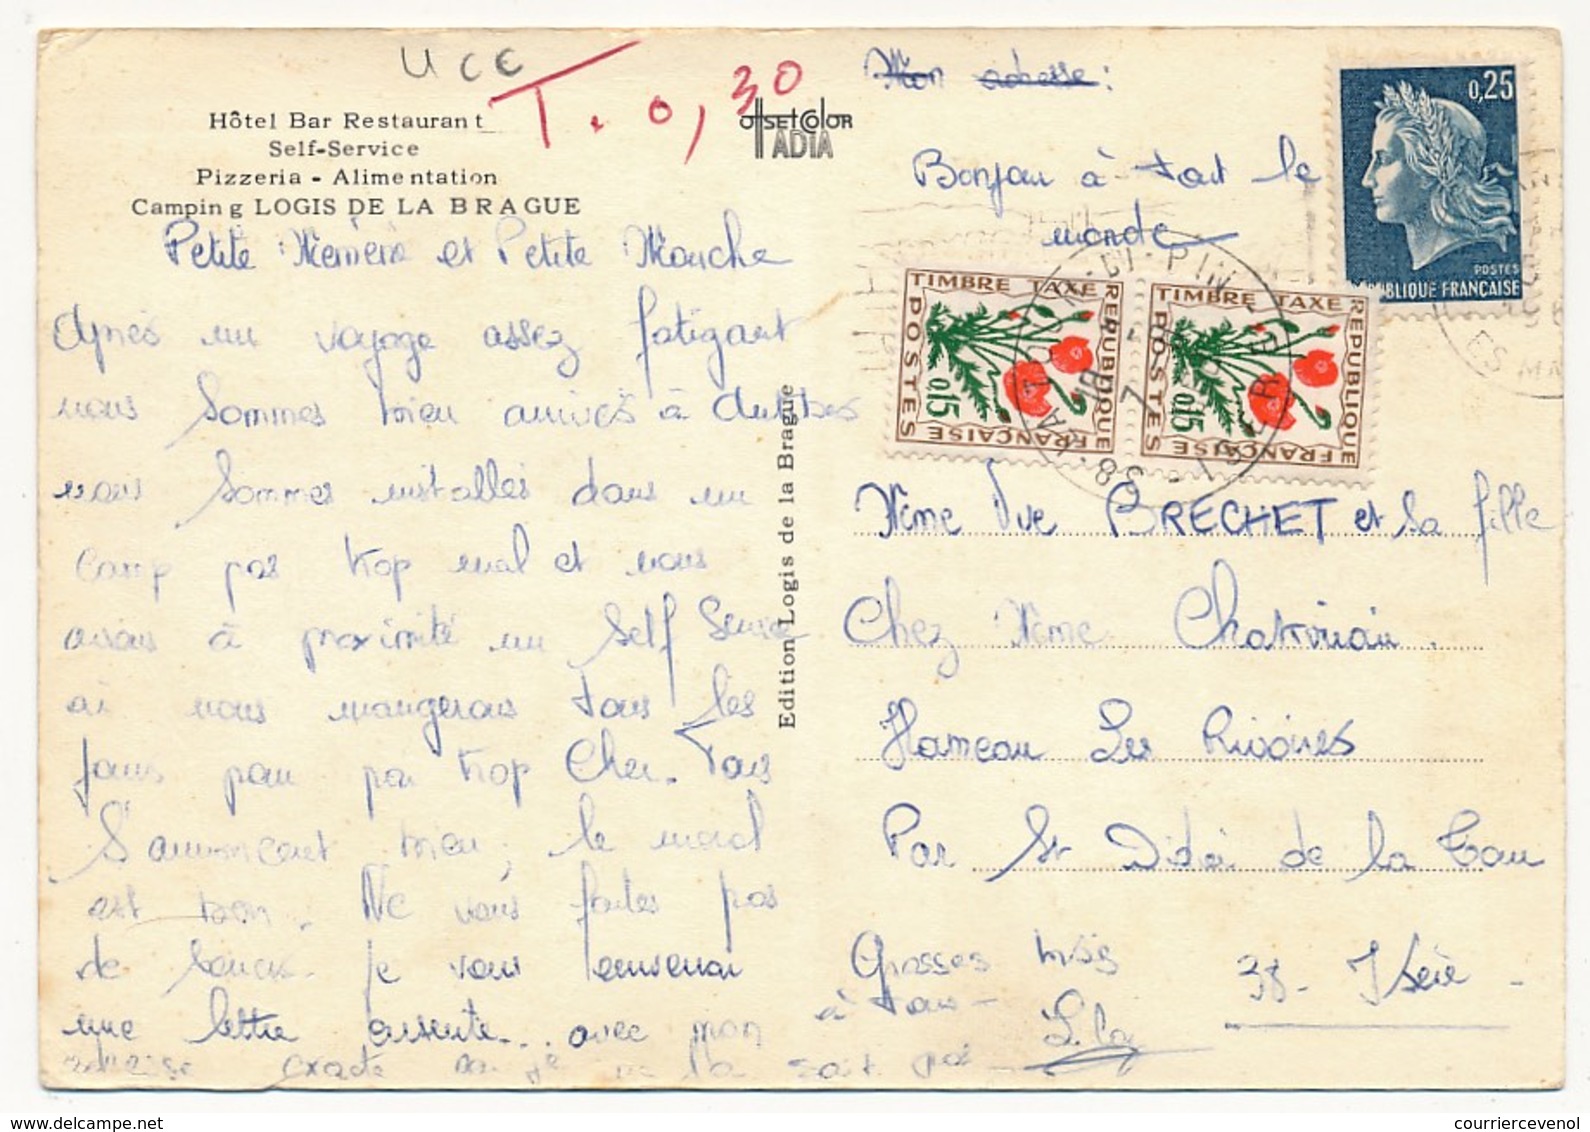 UCE
T. 0,30
Hôtel Bar Restaurant
Self-Service
Pizzeria - Alimentation
Camping LOGIS DE LA BRAGUE
offsetcolor
ADIA
Mon adresse :
Bonjour à tout le
monde
0,25
POSTES
RÉPUBLIQUE FRANÇAISE
TIMBRE TAXE
REPUBLIQUE
FRANÇAISE
POSTES
0,15
TIMBRE TAXE
REPUBLIQUE
FRANÇAISE
POSTES
0,15
LA TOUR-DU-PIN
38 - ISERE
Petite Mémère et Petite Mouche
Après un voyage assez fatigant
nous sommes bien arrivés à Antibes
nous sommes installés dans un
camp pas trop mal et nous
avons à proximité un Self Service
où nous mangerons tous les
jours pour pas trop cher. Tous
s'annoncent bien, le moral
est bon. Ne vous faites pas
de soucis. Je vous enverrai
une lettre ensuite... avec mon
adresse exacte car je ne la sait pas
Edition Logis de la Brague
Mme Vve BRECHET et sa fille
Chez Mme Chatrouan.
Hameau Les Rivoires
Par St Didier de la Tour
38 - Isère -
Grosses bises
à tous -